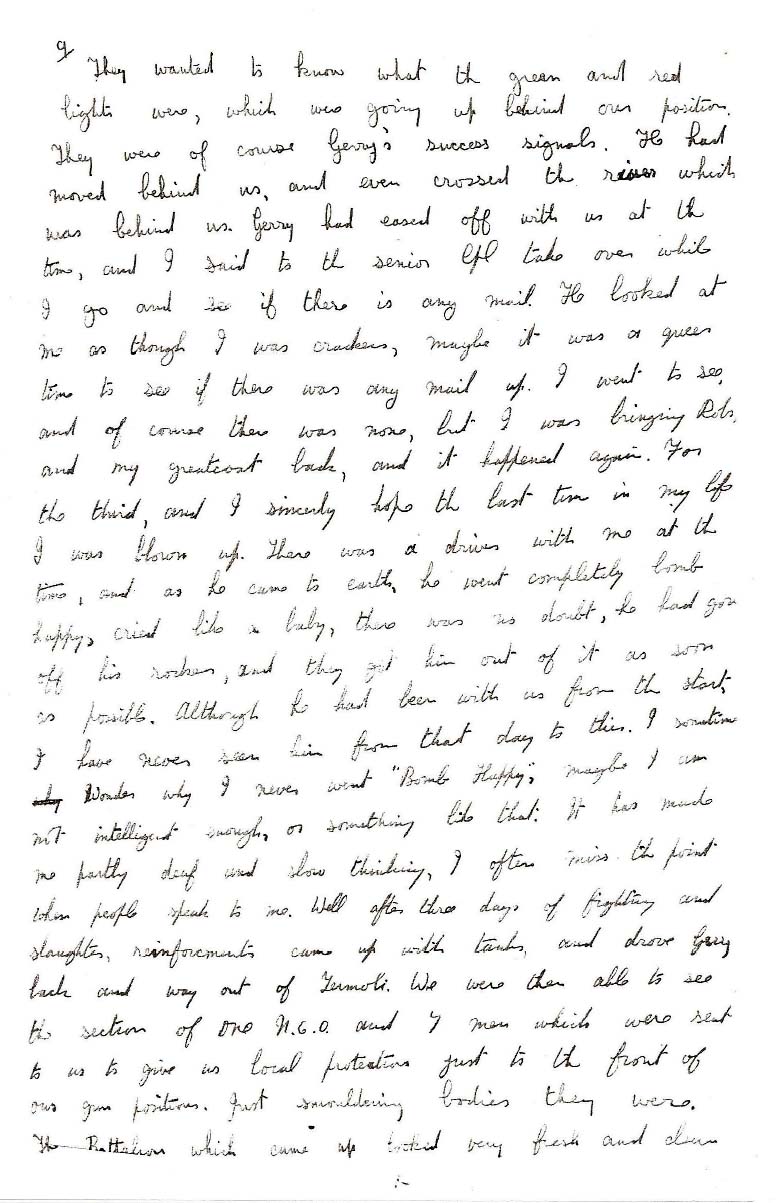 9
They wanted to know what th green and red
lights were, which were going up behind our position.
They were of course Gerry's success signals. He had
moved behind us, and even crossed th river which
was behind us. Gerry had eased off with us at th
time, and I said to th senior Cpl take over while
I go and see if there is any mail. He looked at
me as though I was crackers, maybe it was a queer
time to see if there was any mail up. I went to see,
and of course there was none, but I was bringing Robs,
and my greatcoat back, and it happened again. For
the third, and I sincerly hope th last time in my life
I was blown up. There was a driver with me at th
time, and as he came to earth, he went completely bomb
happy, cried like a baby, there was no doubt, he had gon
off his rocker, and they got him out of it as soon
as possible. Although he had been with us from th start,
I have never seen him from that day to this. I sometime
why Wonder why I never went "Bomb Happy", maybe I am
not intelligent enough, or something like that. It has made
me partly deaf and slow thinking, I often miss th point
when people speak to me. Well after three days of fighting and
slaughter, reinforcments came up with tanks, and drove Gerry
back and way out of Termoli. We were then able to see
th section of one N.C.O. and 7 men which were sent
to us to give us local protection just to th front of
our gun positions. Just smouldering bodies they were.
Th Battalion which came up looked very fresh and clean
:-